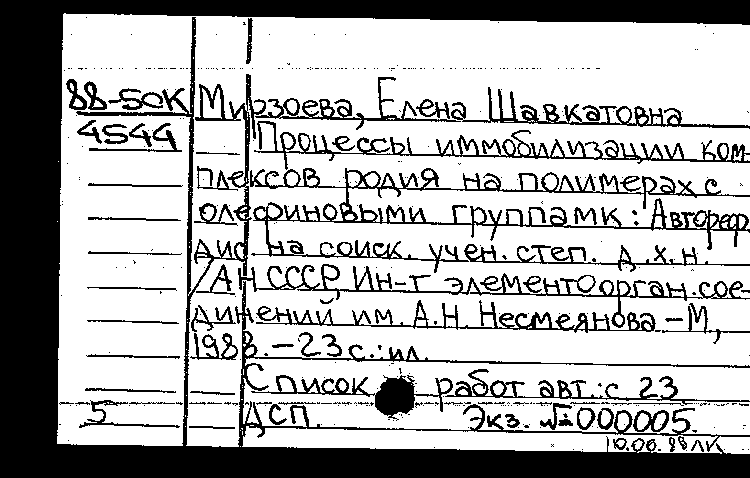 88-50К Мирзоева, Елена Шавкатовна
4544 Процессы иммобилизации ком-
плексов родия на полимерах с
олефиновыми группамк: Автореф.
дис. на соиск. учен. степ. д.х.н.
/АН СССР, Ин-т элементоорган. сое-
динений им. А.Н. Несмеянова – М,
1988. – 23 с.: ил.
Список работ авт.: с 23
5 ДСП. Экз. № 000005.
88 ЛК